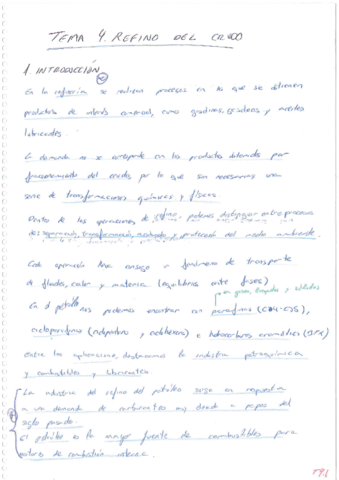 TEMA 4. REFINO DEL CRUDO
1. INTRODUCCIÓN
En la refinería se realizan procesos en los que se obtienen
productos de interés comercial, como gasolinas, gasóleos y aceites
lubricantes.
La demanda no se corresponde con los productos obtenidos por
fraccionamiento del crudo, por lo que son necesarias una
serie de transformaciones químicas y físicas.
Dentro de las operaciones de refino, podemos distinguir entre procesos
de: separación, transformación, acabado y protección del medio ambiente.
Cada operación lleva consigo fenómenos de transporte
de fluidos, calor y materia (equilibrios entre fases)
gases, líquidos y sólidos
En el petróleo nos podemos encontrar con parafinas
cicloparafinas y hidrocarburos aromáticos (BTX)
entre las aplicaciones, destacamos la industria petroquímica
y combustibles y lubricantes.
La industria del refino del petróleo surge en respuesta
a una demanda de carburantes muy desde a
siglo pasado.
El petróleo es la mayor fuente de combustibles para
motores de combustión interna.